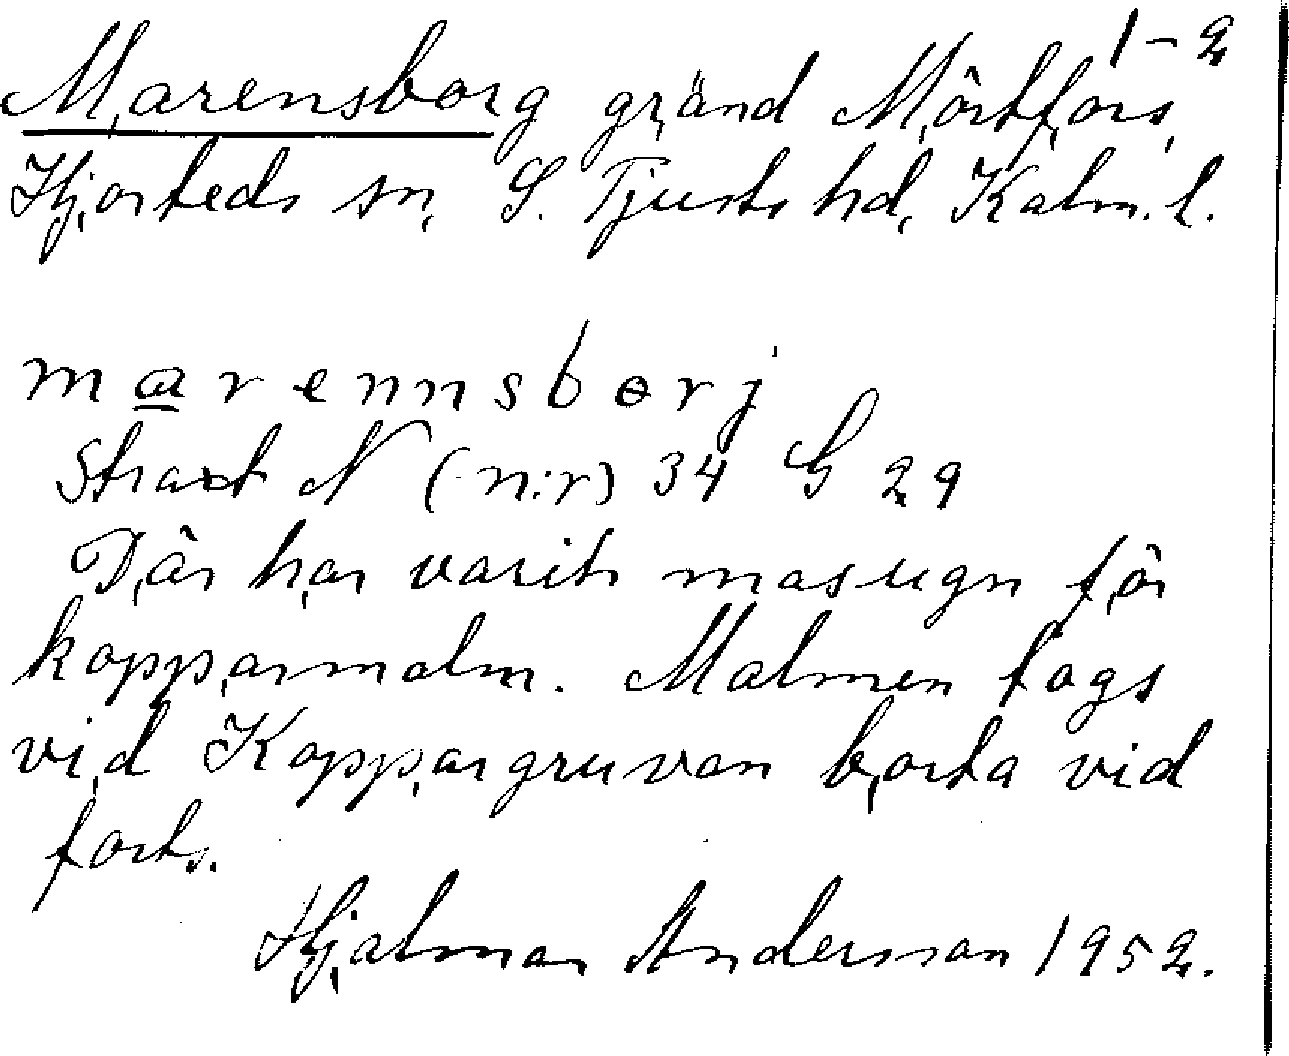 1-2
Marensborg gränd Mörtfors,
Hjorteds sn, S. Tjusts hd, Kalm. l.
marennsbɵrj
Strax N (n:r) 34 G 29
Där har varit masugn för
kopparmalm. Malmen togs
vid Koppargruvan borta vid
forts.
Hjalmar Andersson 1952.